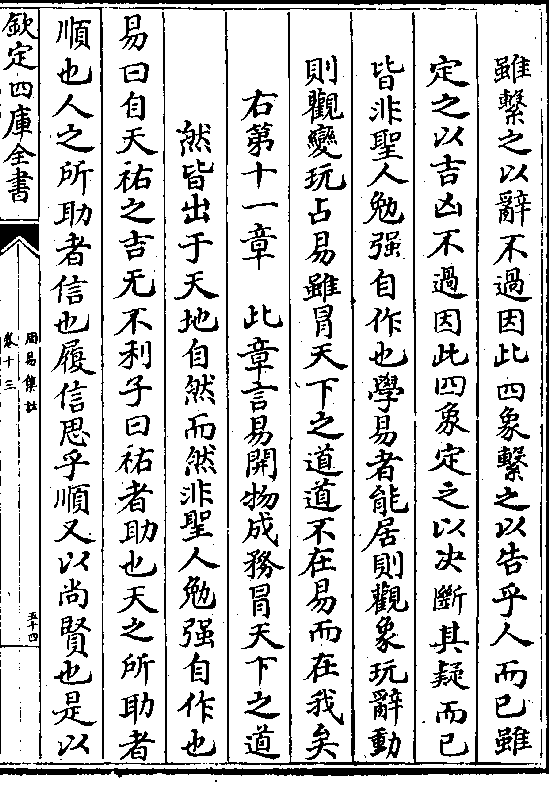 雖繫之以辭不過因此四象繫之以告乎人而已雖
定之以吉凶不過因此四象定之以决斷其疑而已
皆非聖人勉强自作也學易者能居則觀象玩辭動
則觀變玩占易雖冒天下之道道不在易而在我矣
右第十一章　此章言易開物成務冒天下之道
然皆出于天地自然而然非聖人勉强自作也
易曰自天祐之吉无不利子曰祐者助也天之所助者
順也人之所助者信也履信思乎順又以尚賢也是以
欽定四庫全書
周易集註
卷十三
五十四